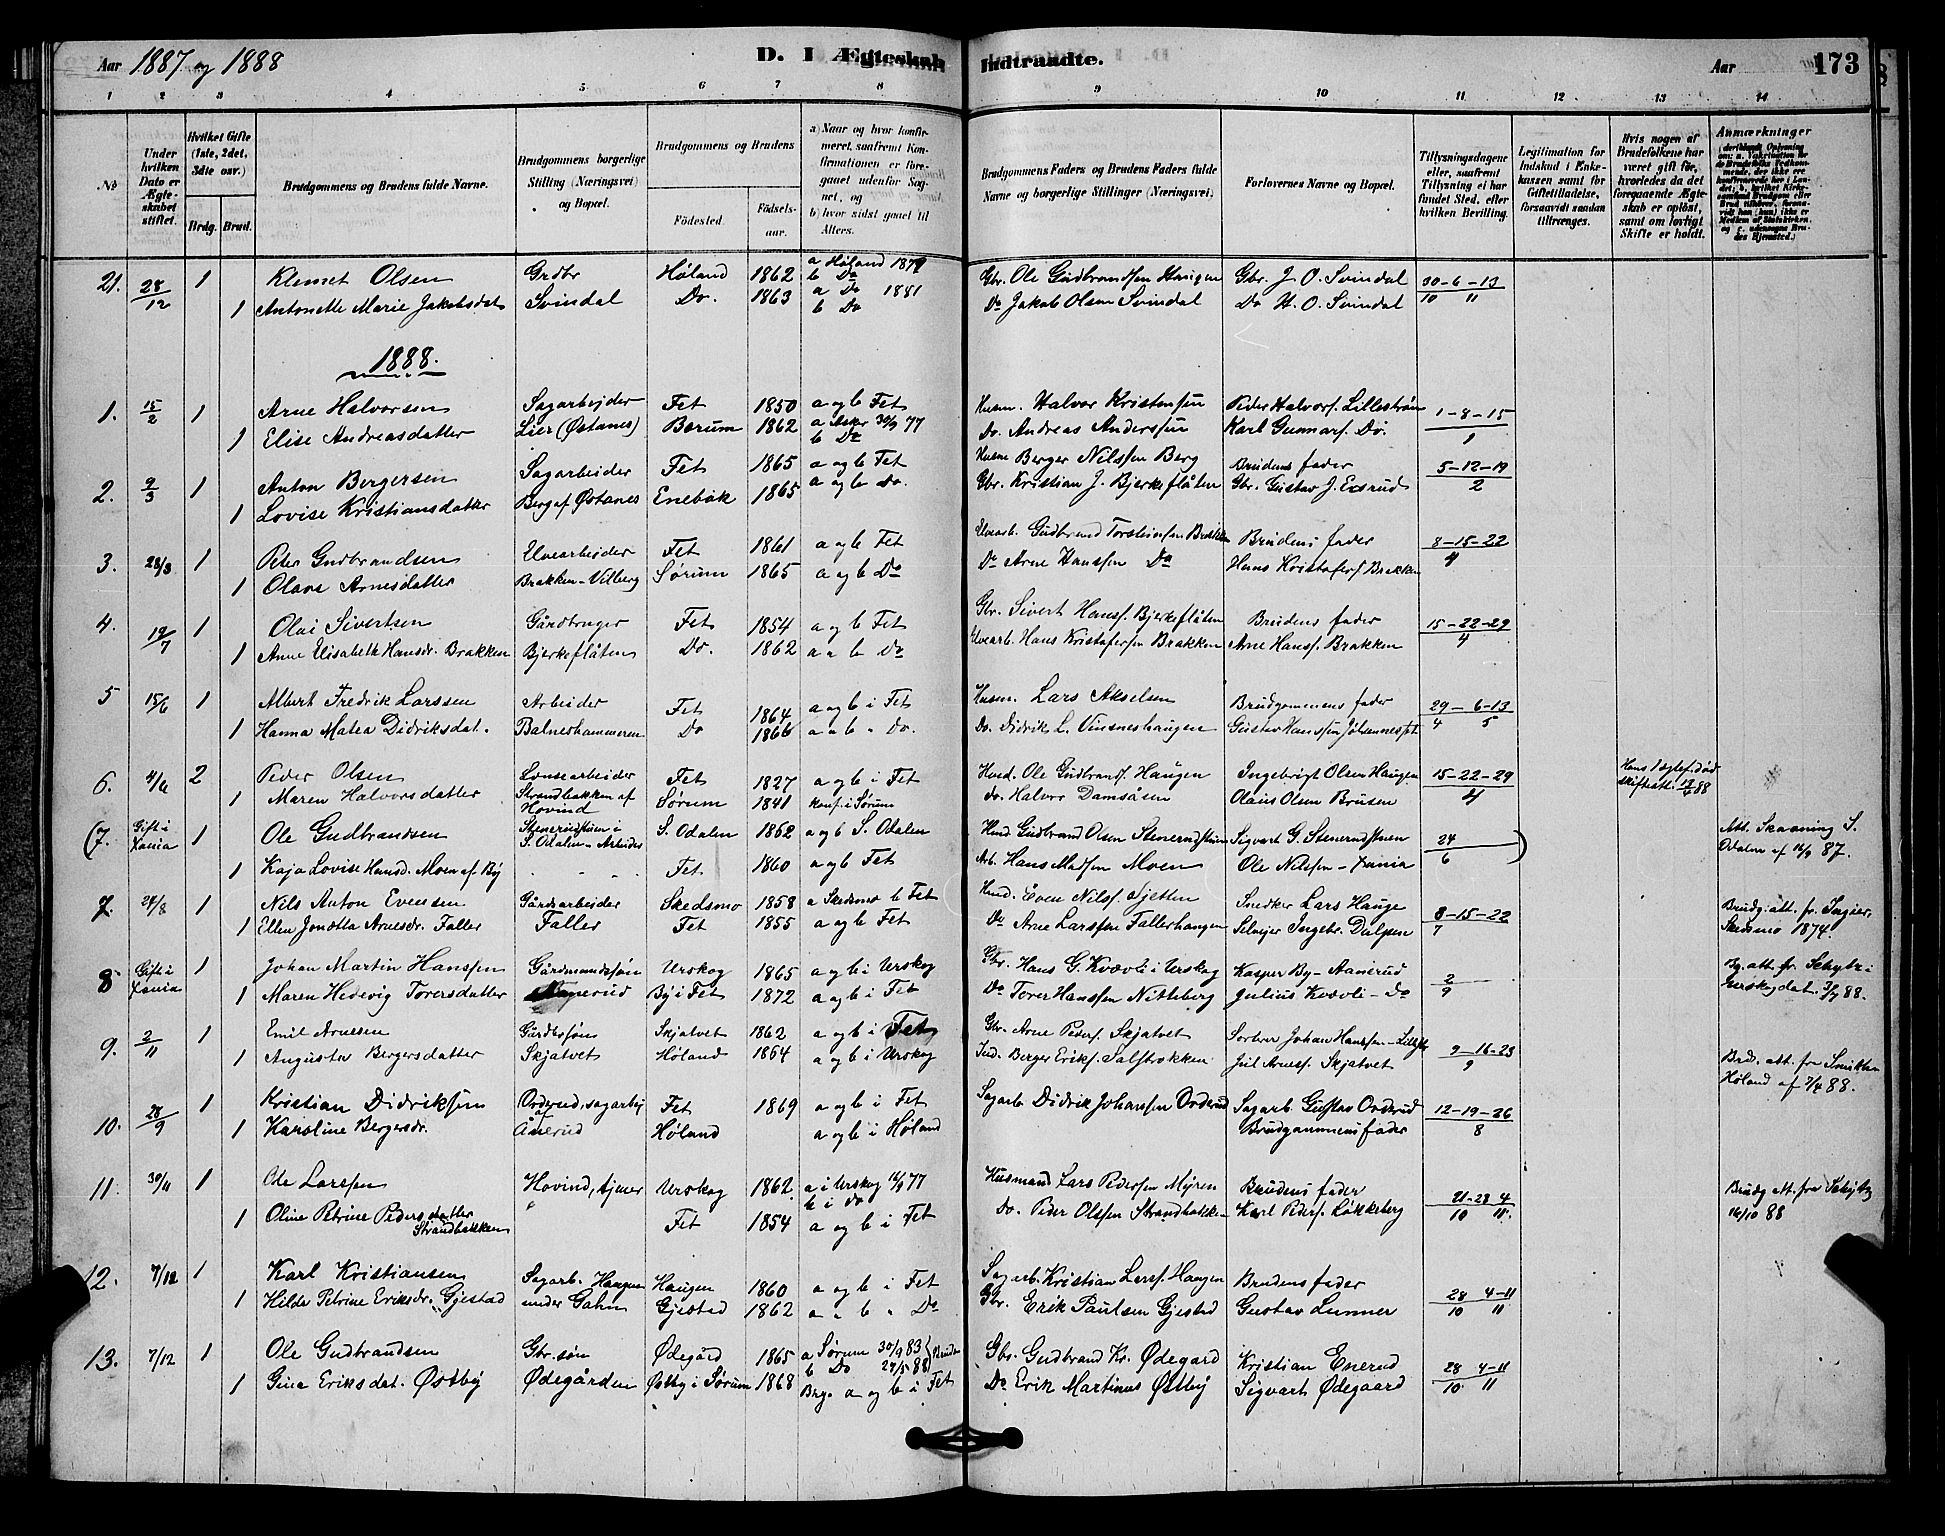 Aar 1887 og 1888
D. I Ægteskab Indtraadte.
Aar 173
1 2 3 4 5 6 7 8 9 10 11 12 13 14
No
Under hvilken Dato er Ægteskabet stiftet.
Hvilket Gifte (1ste, 2det, 3die osv.)
Brdg. Brud.
Brudgommens og Brudens fulde Navne.
Brudgommens borgerlige Stilling (Næringsvei) og Bopæl.
Brudgommens og Brudens
Fødested. Fødselsaar.
a) Naar og hvor konfirmeret, saafremt Konfirmationen er foregaaet udenfor Sognet, og
b) hvor sidst gaaet til Alters.
Brudgommens Faders og Brudens Faders fulde Navne og borgerlige Stillinger (Næringsvei).
Forlovernes Navne og Bopæl.
Tillysningsdagene eller, saafremt Tillysning ei har fundet Sted, efter hvilken Bevilling.
Legitimation for Indskud i Enkekassen samt for Giftetilladelse, forsaavidt saadan tiltrænges.
Hvis nogen af Brudefolkene har været gift før, hvorledes da det foregaaende Ægteskab er opløst, samt om lovligt Skifte er holdt.
Anmærkninger
21. 28/12 1 Klemet Olsen Grdbr Høland 1862 a Høland 1879 b Do Gbr. Ole Gudbrandsen Haugen Gbr. J. O. Svindal 30-6-13
1 Antonette Marie Jakobsdat Svindal Do. 1863 a Do 1881 b Do Do Jakob Olsen Svindal Do H. O. Svindal 10 11
1888.
1. 15/2 1 Arne Halvorsen Sagarbejder Fet 1850 a og b Fet Husm. Halvor Kristensen Peder Halvors. Lillestrøm 1-8-15
1 Elise Andreasdatter Lier (Østanes) Bærum 1862 a Asker 30/9 77 b Do Do. Andreas Anderssen Karl Gunnars. Do. 1
2. 9/3 1 Anton Bergersen Sagarbeider Fet 1865 a og b Fet Husm Berger Nilssen Berg Brudens fader 5-12-19
1 Lovise Kristiansdatter Berg af Østanes Enebak 1865 a og b Do. Gbr. Kristian J. Bjerkeflåten Gbr. Gustav J. Enerud 2
3. 23/3 1 Peter Gudbrandsen Elvearbeider Fet 1861 a og b Fet Elvearb. Gudbrand Torsteinsen Brakken Brudens fader 8-15-22
1 Olava Arnesdatter Brakken-Vilberg Sørum 1865 a og b Do Do Arne Hanssen Do Hans Kristofers. Brakken 4
4. 19/7 1 Olai Sivertsen Gårdbruger Fet 1854 a og b Fet Gbr. Sivert Hans. Bjerkeflåten Brudens fader 15-22-29
1 Anne Elisabeth Hansdr. Brakken Bjerkeflåten Do. 1862 a " b Do Elvearb. Hans Kristofersen Brakken Arne Hanss. Brakken 4
5 15/6 1 Albert Fredrik Larssen Arbeider Fet 1864 a og b i Fet Husm. Lars Akselsen Brudgommens fader 29-6-13
1 Hanna Matea Didriksdat. Balnershammeren Do 1866 a " b " Do. Do. Didrik L. Vinsneshaugen Gustav Hanssen 4 5
6. 4/6 2 Peder Olsen Lensearbeider Fet 1827 a og b i Fet Husd. Ole Gudbrands. Haugen Ingebrigt Olsen Haugen 15-22-29 Hans 1 Ægtef. død skifteatt. 12/4 88
1 Maren Halvorsdatter Strandbakken af Hovind Sørum 1841 konf. i Sørum do. Halvor Damsåsen Olaus Olsen Brusen 4
(7. Gift i Xania 1 Ole Gudbrandsen Stenerudstuen i S. Odalen Arbeider S. Odalen 1862 a og b S. Odalen Husd Gudbrand Olsen Stenerudstuen Sigvart G. Stenerudstuen 24/6 ) Att. Skanning S. Odalen af 16/9 87.
1 Kaja Lovise Hansd. Moen af By Fet 1860 a og b Fet Arb. Hans Madsen Moen Ole Nilssen - Xania
7. 24/8 1 Nils Anton Evensen Gårdarbeider Skedsmo 1858 a Skedsmo b Fet Husd. Even Nils. Sjetten Snedker Lars Hauge 8-15-22 Brudg. att. fr. Ingier, Skedsmo 1874.
1 Ellen Jonetta Arnesdr. Faller Faller Fet 1855 a og b Fet Do Arne Larssen Fallerhaugen Selveier Ingebr. Dalpen 7
8 Gift i Xania 1 Johan Martin Hanssen Gårdmandssøn Urskog 1865 a og b i Urskog Gbr. Hans G. Kvævli i Urskog Kasper By - Aanerud 2/9 Bg. att. fr. Schytz i Urskog dat. 3/7 88.
1 Maren Hedevig Toversdatter By i Fet 1872 a og b i Fet Do Tover Hanssen Nitteberg Julius Kvævli - Do
9. 2/11 1 Emil Arnesen Gårdbr.søn Skjatvet 1862 a og b i Fet Gbr. Arne Peders. Skjatvet Sorterer Johan Hanssen - Lillest 9-16-23
1 Augusta Bergersdatter Skjatvet Høland 1864 a og b i Urskog Ind. Berger Eriks. Jul Arness. Skjatvet 9 Brd. att. fra Høland af 7/4 88.
10. 28/9 1 Kristian Didriksen Orderud, sagarbej Fet 1869 a og b i Fet Sagarb Didrik Johansen Orderud Sagarb. Gustav Orderud 12-19-26
1 Karoline Bergersdr. Ånerud Høland a og b i Høland Brudgommens fader 8
11. 30/11 1 Ole Larssen Hovind, tjener Urskog 1862 a i Urskog 16/9 77 b i do Husmand Lars Pedersen Myren Brudens fader 21-28 4 Brudg att. fra Schytz 16/10 88
1 Oline Petrine Pedersdatter Strandbakken " Fet 1854 a og b i Fet Do. Peder Olssen Strandbakke- Karl Peders. Løkkeberg 10 11
12. 7/12 1 Karl Kristiansen Sagarb. Haugen Haugen 1860 a og b i Fet Sagarb. Kristian Larss. Haugen Brudens fader 28 4-11
1 Hilda Petrine Eriksdr. Gjestad under Gahn Gjestad 1862 a " b " Do Gbr. Erik Paulsen Gjestad Gustav Lunner 10 11
13. 7/12 1 Ole Gudbrandsen Gbr. søn Ødegård 1865 a Sørum 30/9 83 b Do 27/5 88 Bruden Gbr. Gudbrand Kr. Ødegard Kristian Enerud 28 4-11
1 Gina Eriksdat. Østby Ødegården Østby i Sørum 1868 Brg. a og b i Fet Do Erik Martinus Østby Sigvart Ødegaard 10 11